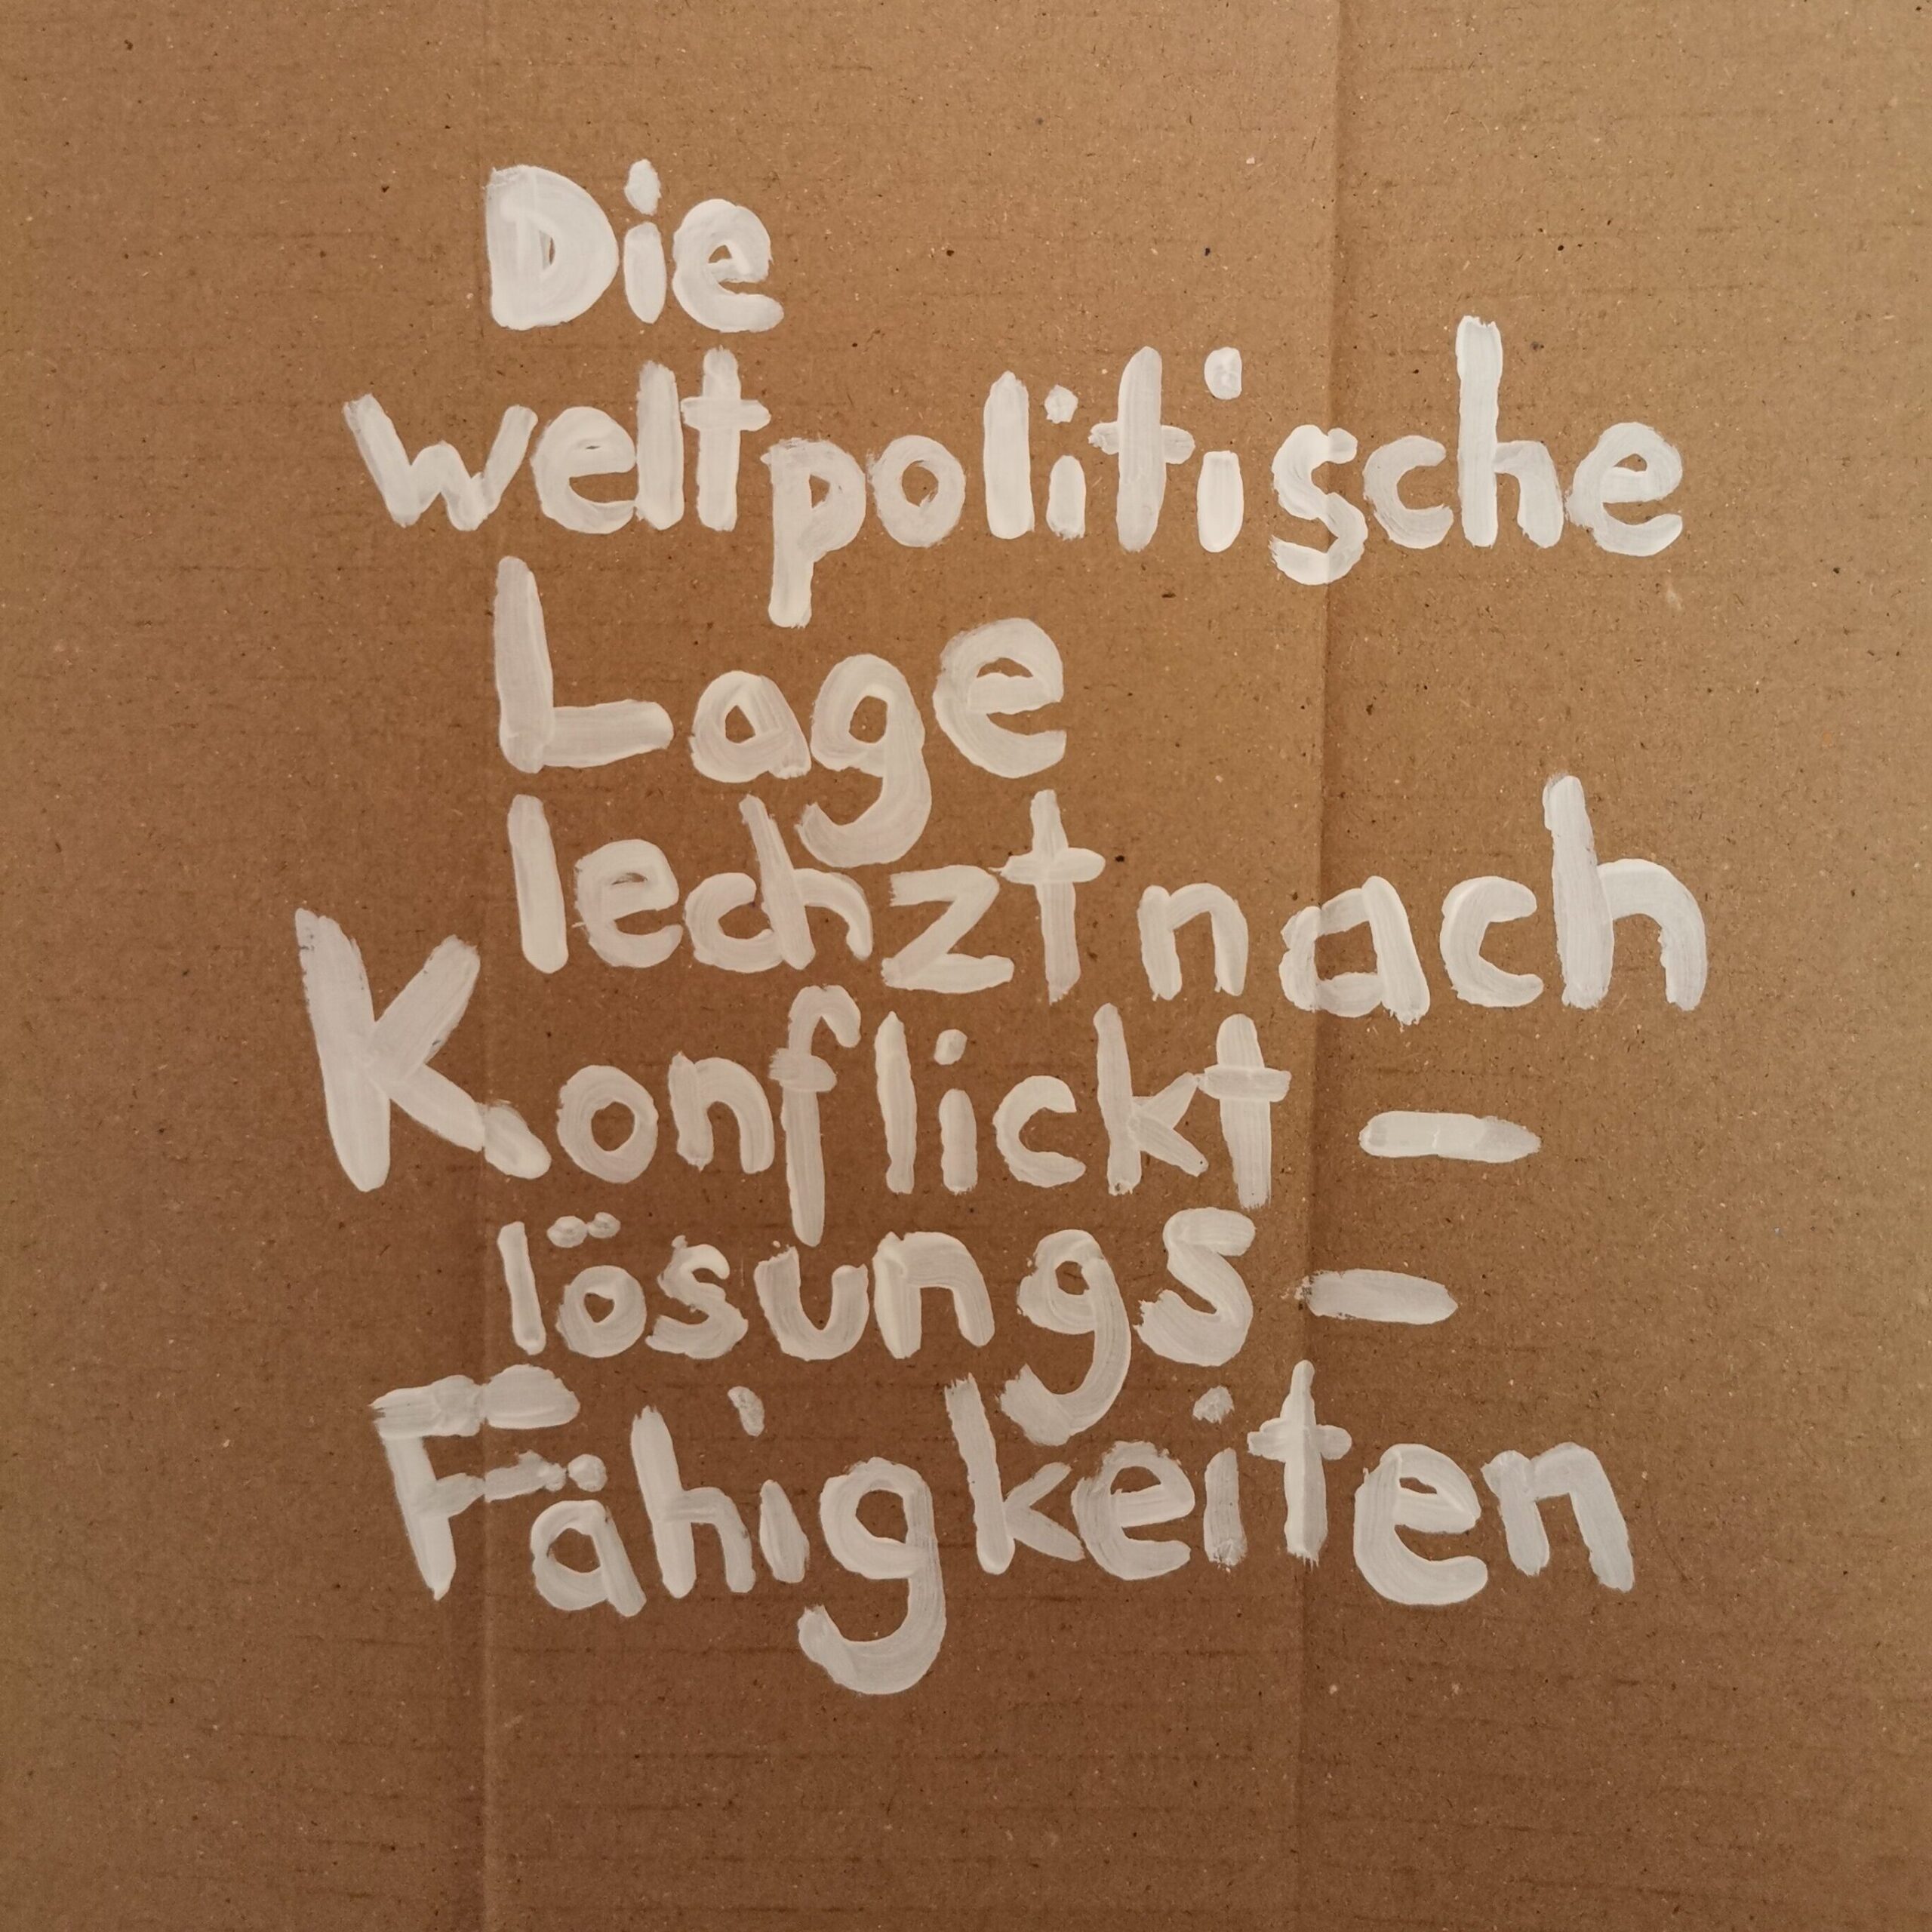 Die
weltpolitische
Lage
lechzt nach
Konflickt-
lösungs-
Fähigkeiten